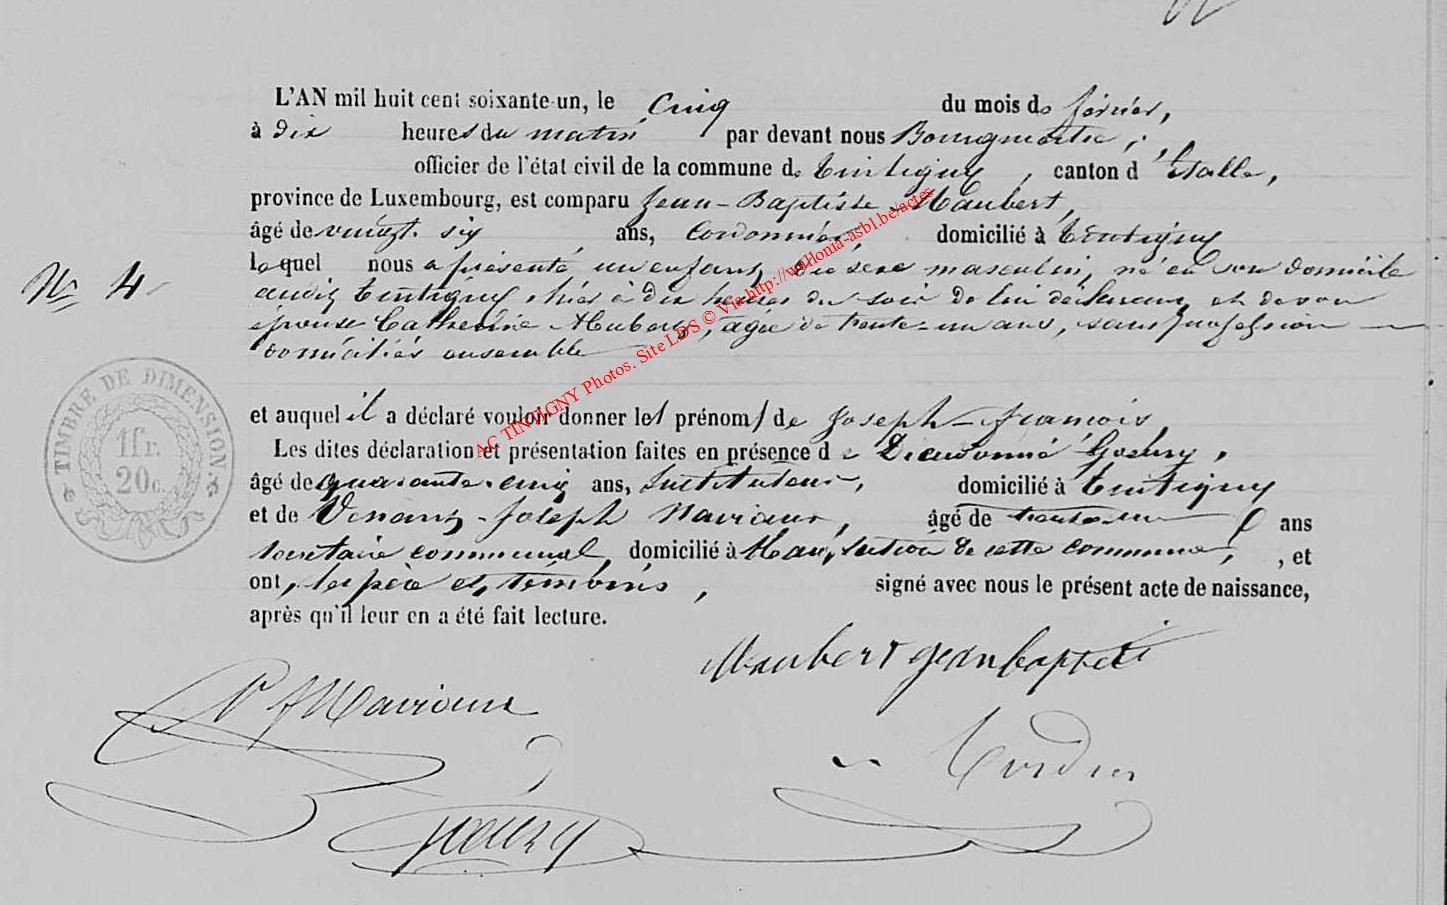 L'AN mil huit cent soixante-un, le cinq du mois de février,
à dix heures du matin par devant nous Bourgmestre,
officier de l'état civil de la commune de Tintigny, canton d'Etalle,
province de Luxembourg, est comparu Jean-Baptiste Maubert,
âgé de vingt-six ans, Cordonnier domicilié à Tintigny
lequel nous a présenté un enfant du sexe masculin, né en son domicile
N° 4
audit Tintigny, hier à dix heures du soir de lui déclarant et de son
épouse Catherine Hubert, agée de trente-un ans, sans profession
domiciliés ensemble
et auquel il a déclaré vouloir donner les prénoms de Joseph-François,
Les dites déclaration et présentation faites en présence de Dieudonné Goeury,
âgé de quarante-cinq ans, Instituteur, domicilié à Tintigny
et de Venant-Joseph Naviaux, âgé de ans
secrétaire communal, domicilié à Han, section de cette commune, et
ont, les père et témoins, signé avec nous le présent acte de naissance,
après qu'il leur en a été fait lecture.
Maubert jean baptiste
V J Naviaux
Goeury
TIMBRE DE DIMENSION
1fr.
20c.
AC TINTIGNY Photos. Site LDS © Via http://wallonia-asbl.be/actes